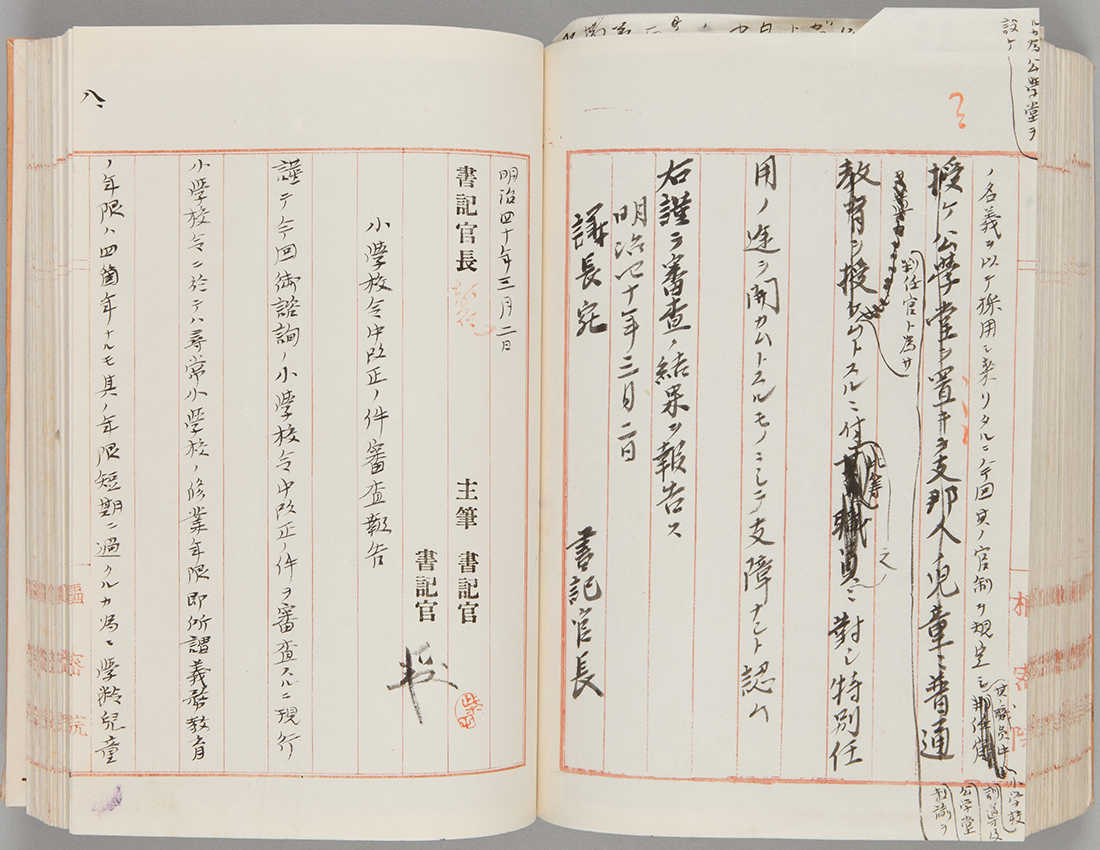 ルカ為公学堂ヲ
設ケ
ノ名義ヲ以テ採用シ来リタルニ今回其ノ官制ヲ規定シ
授ケ公學堂ヲ置キテ支那人児童ニ普通
判任官ト為サ
教育ヲ授ケムトスルニ付
此等
職員ニ對シ特別任
之
用ノ途ヲ開カムトスルモノニシテ支障ナシト認ム
右謹テ審査ノ結果ヲ報告ス
明治四十年三月二日
書記官長
議長宛
小学校
訓導及
公学堂
教諭ヲ
樞密院
八
明治四十年三月二日
書記官長
主筆 書記官
書記官
小學校令中改正ノ件審査報告
謹テ今回御諮詢ノ小學校令中改正ノ件ヲ審査スルニ現行
小學校令ニ於テハ尋常小學校ノ修業年限即所謂義務教育
ノ年限ハ四箇年ナルモ其ノ年限短期ニ過クルカ為ニ學齢兒童
樞密院